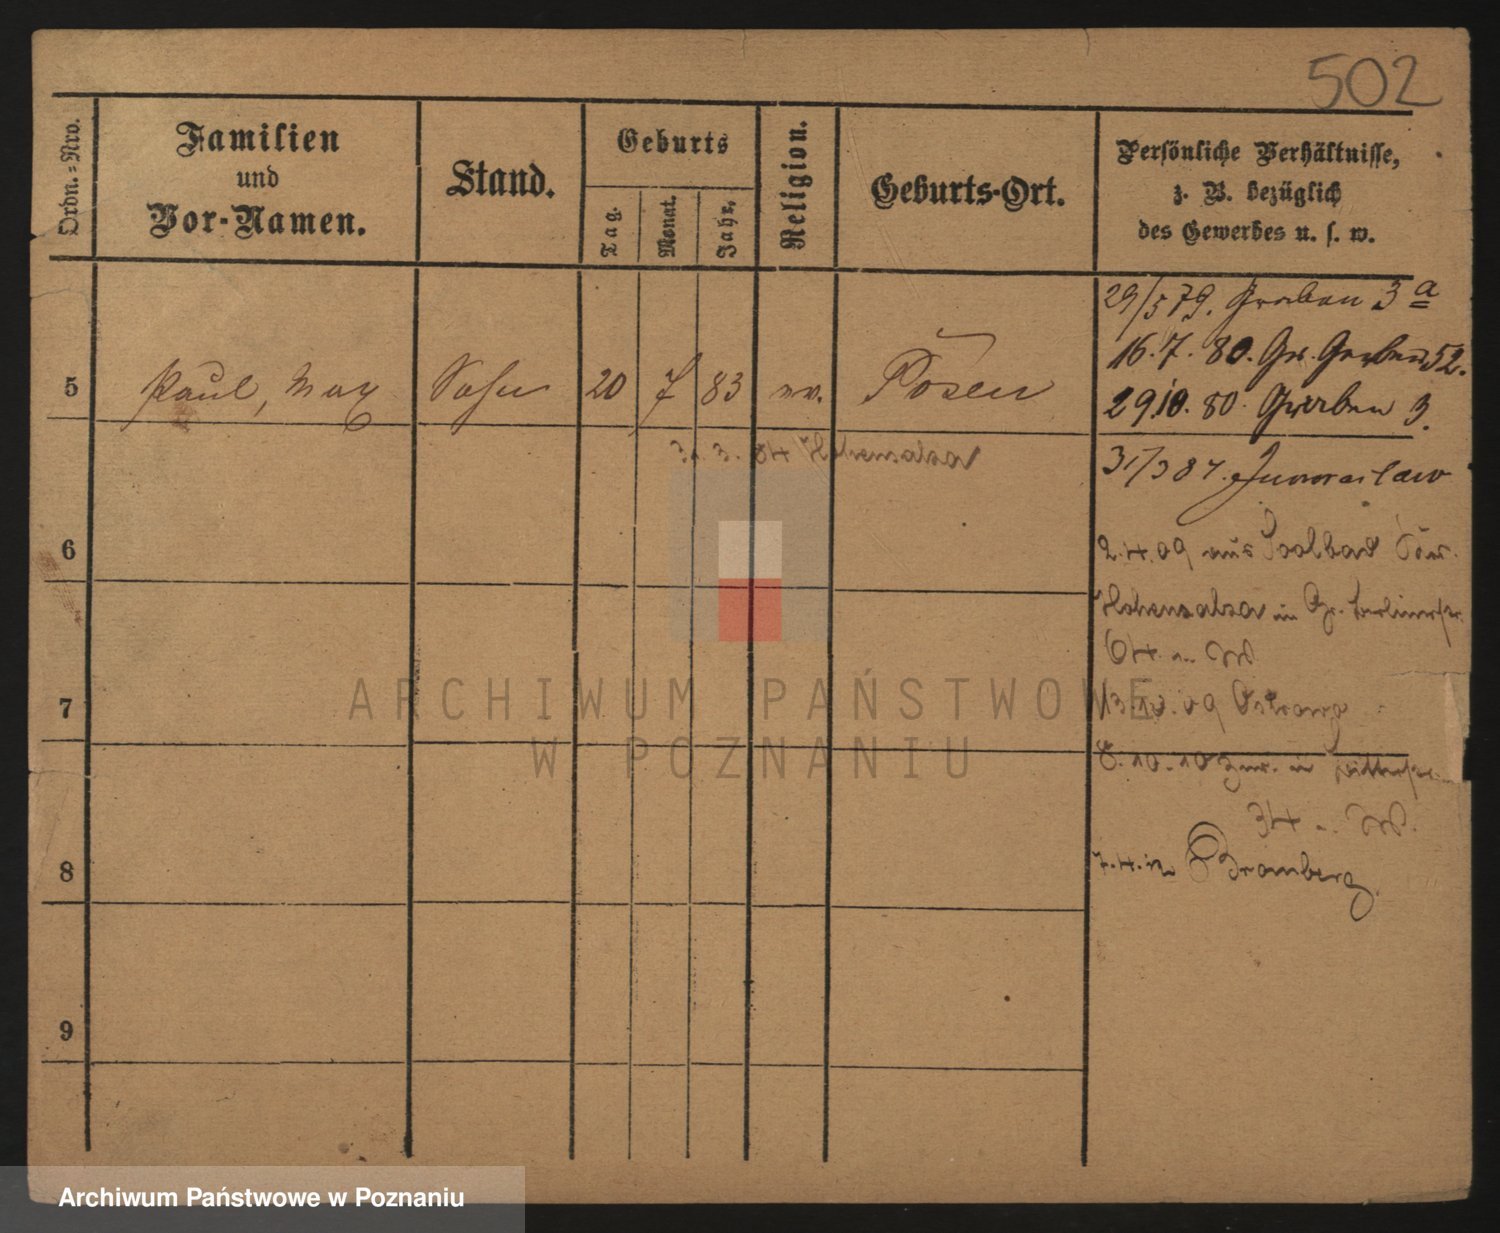 502
Ordn.-Nro.
Familien
und
Vor-Namen.
Stand.
Geburts
Tag.
Monat.
Jahr.
Religion.
Geburts-Ort.
Persönliche Verhältnisse,
z. B. bezüglich
des Gewerbes u. s. w.
29/5 79. Graben 3 a
16. 7. 80. Gr. Gerber 52.
29 10. 80. Graben 3.
5 Paul, Max Sohn 20 7 83 ev. Posen
31. 3. 84 Hohensalza
31/3 87. Inowraclaw
6
2. 4. 09 aus Soolbad
Hohensalza in Gr. Berlinerstr.
64
7
13. 10. 09 Ostrowo
8. 10. 10 in Ritterstr.
34
8
7. 4. 12 Bromberg
9
ARCHIWUM PAŃSTWOWE
W POZNANIU
Archiwum Państwowe w Poznaniu